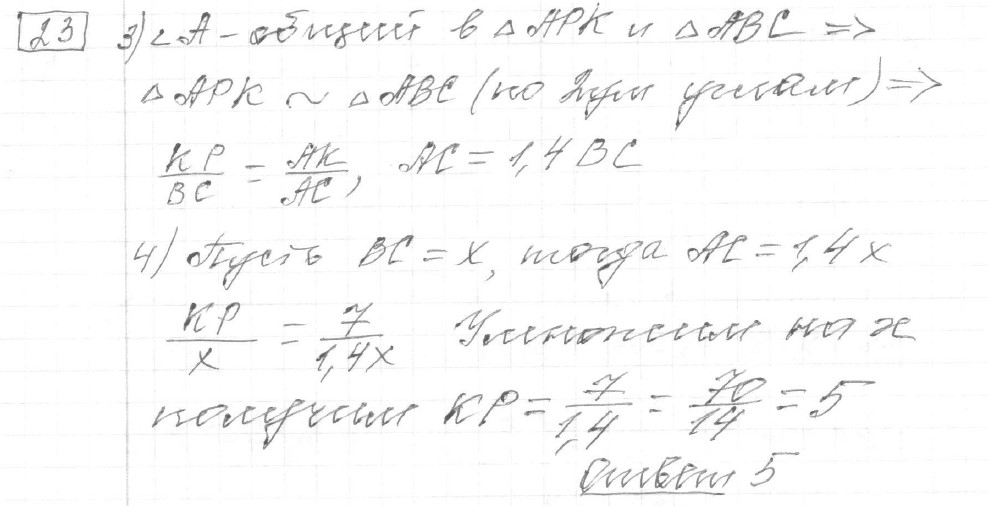 23 3) ∠A - общий в △APK и △ABC =>
△APK ~ △ABC (по 2ум углам) =>
KP/BC = AK/AC, AC = 1,4 BC
4) Пусть BC = x, тогда AC = 1,4x
KP/x = 7/1,4x Умножим на x
получим KP = 7/1,4 = 70/14 = 5
Ответ 5